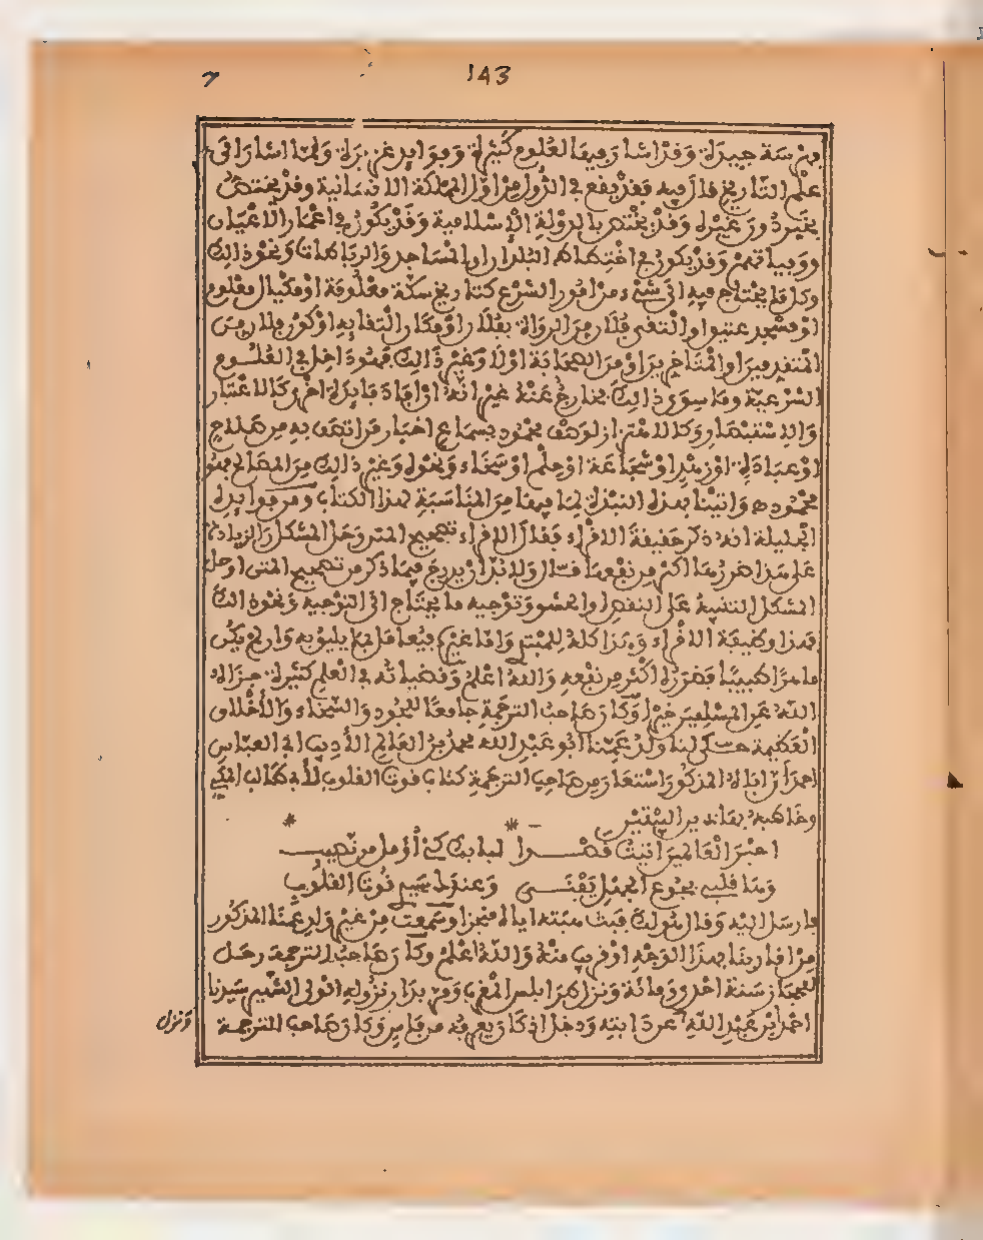 143
فهرسة جيدة وقد اشار فيها لعلوم كثيرة وفوايد غزيرة ولما اشار الى
علم التاريخ قال فيه فقد يقع في الدول من اول المملكة الانسانية وقد يختص
بخير دون غيره وقد يختص بالدولة الاسلامية وقد يكون في اعمار الاعيان
ووفياتهم وقد يكون في اختطاط البلدان او المساجد والرباطات ونحو ذلك
وكل ما يحتاج فيه الى شيء من امور الشرع كتاريخ سكة معلومة او مكيال معلوم
او مسجد عتيق او التفى فلان من الرواة بفلان او مكان التقايه او كون فلان من
المتقدمين او المتاخرين او من الصحابة اولا وغير ذلك فهو داخل في العلوم
الشرعية وما سوى ذلك خارج عنه غير انه ان افاد فايدة اخرى كالاعتبار
والاستبصار وكالاهتزاز لوصف محمود بسماع اخبار من اتصف به من صلاح
او عبادة او زهد او شجاعة او حلم او سخاء ونحوه وغير ذلك من المصالح فهو
محمود ه واتينا بهذه النبذة لما فيها من المناسبة لهذا الكتاب ومن فوايده
الجليلة انه ذكر حقيقة الاقراء فقال الاقراء تصحيح المتن وحل المشكل والزيادة
على هذا ضررها اكثر من نفعها قال ولابد ان يدرج فيما ذكر من تصحيح المتن او حل
المشكل التنبيه على النقص او الحشو وتوجيه ما يحتاج الى التوجيه ونحو ذلك
فهذا وظيفة الاقراء وهذا كله للمبتدي واما غيره فيعامل بما يليق به وان لم يكن
ماهرا طبيبا فضرره اكثر من نفعه والله اعلم وفضيلاته في العلم كثيرة جزاه
الله عن المسلمين خيرا وكان صاحب الترجمة جامعا للجود والسخاء والاخلاق
العظيمة حكى لنا ولد عمنا ابو عبد الله محمد بن العالم الأديب ابي العباس
احمد ان اباه المذكور استعار من صاحب الترجمة كتاب قوت القلوب لأبي طالب المكي
وخاطبه بهاذين البيتين
احبر العالمين اتيت قصدا لبابك كي أؤمل من نصيب
وها قلبي بجوع الجهل يفنى وعندك سيدي قوت القلوب
فارسل اليه وقال قبلت هبته اياه منجزا وسمعت من غير ولد عمنا المذكور
من اقاربنا بهذا الوجه او قريب منه والله اعلم وكان صاحب الترجمة رحل
للحجاز سنة احدى ومائة ونزل طرابلس الغرب وفي بدء نزوله اتوا الى الشيخ سيدنا
احمد بن عبد الله عن دابته ودخل اذ كان يعرفه من فاس وكان صاحب الترجمة
ونزل